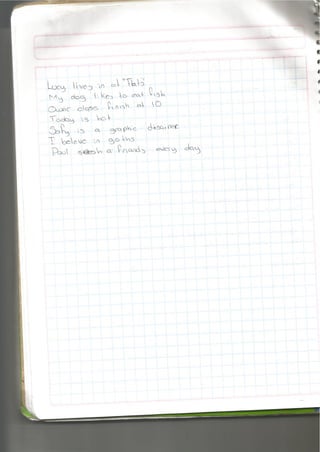 Lucy lives in at "Flats"
My dog likes to eat fish
Ower class finish at 10
Today is hot
Sofy is a graphic
I beleve in goths
Paul a friends every day